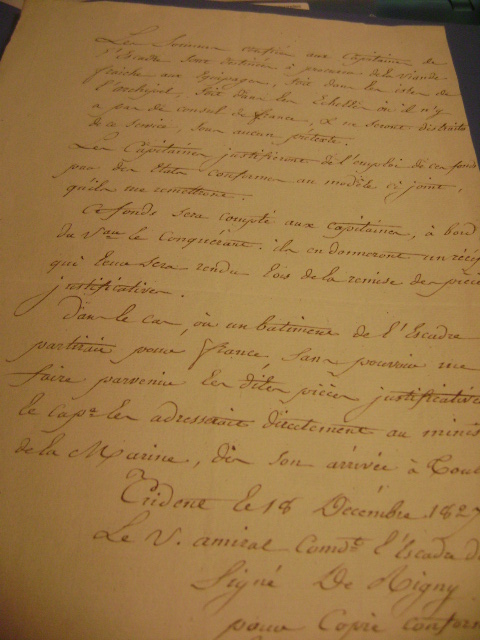 Les Sommes confiées aux Capitaines de
l'Escadre sont destinées à procurer de la Viande
fraîche aux Equipages, soit dans les isles de
l'archipel, soit dans les Echelles où il n'y
a pas de consul de france, & ne seront distraits
de ce service, sous aucun prétexte.
Les Capitaines justifieront de l'emploi de ces fonds
par des Etats conformes au modèle ci joint,
qu'ils me remettront.
Ce fonds sera compté aux capitaines, à bord
du Vau le Conquérant. ils en donneront un
qui leur sera rendu lors de la remise des
justificatives.
Dans le cas, où un bâtiment de l'Escadre
partirait pour france, sans pouvoir me
faire parvenir les dites pièces justificatives
le capne les adresserait directement au
de la Marine, dès son arrivée à
Trident le 18 Décembre 1827
Le V. amiral Comdt l'Escadre
Signé De Rigny
pour Copie